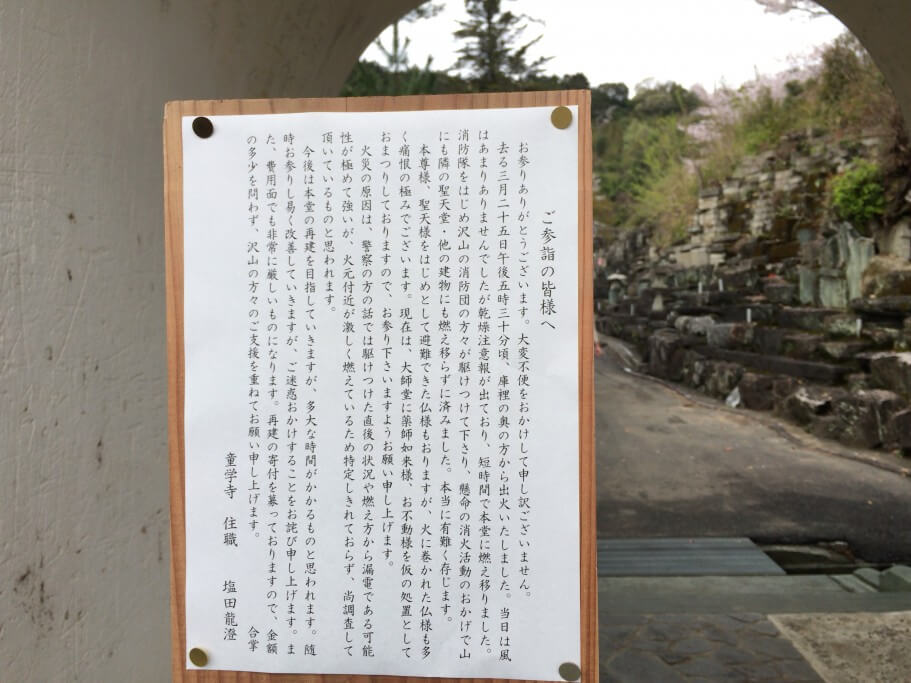 ご参詣の皆様へ
お参りありがとうございます。大変不便をおかけして申し訳ございません。
去る三月二十五日午後五時三十分頃、庫裡の奥の方から出火いたしました。当日は風
はあまりありませんでしたが乾燥注意報が出ており、短時間で本堂に燃え移りました。
消防隊をはじめ沢山の消防団の方々が駆けつけて下さり、懸命の消火活動のおかげで山
にも隣の聖天堂・他の建物にも燃え移らずに済みました。本当に有難く存じます。
本尊様、聖天様をはじめとして避難できた仏様もおりますが、火に巻かれた仏様も多
く痛恨の極みでございます。現在は、大師堂に薬師如来様、お不動様を仮の処置として
おまつりしておりますので、お参り下さいますようお願い申し上げます。
火災の原因は、警察の方の話では駆けつけた直後の状況や燃え方から漏電である可能
性が極めて強いが、火元付近が激しく燃えているため特定しきれておらず、尚調査して
頂いているものと思われます。
今後は本堂の再建を目指していきますが、多大な時間がかかるものと思われます。随
時お参りし易く改善していきますが、ご迷惑おかけすることをお詫び申し上げます。ま
た、費用面でも非常に厳しいものになります。再建の寄付を募っておりますので、金額
の多少を問わず、沢山の方々のご支援を重ねてお願い申し上げます。
合掌
童学寺 住職 塩田龍澄